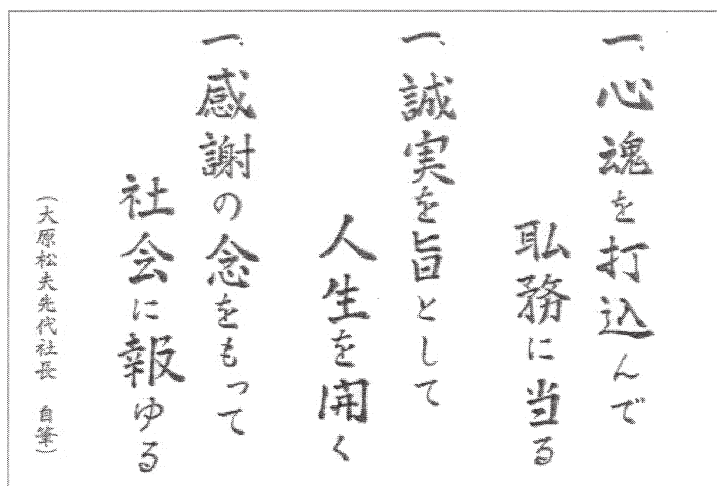 一、心魂を打込んで
耺務に当る
一、誠実を旨として
人生を開く
一、感謝の念をもって
社会に報ゆる
(大原松夫先代社長　自筆)